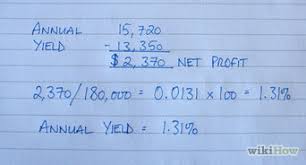 ANNUAL 15,720
YIELD - 13,350
$2,370 NET PROFIT
2,370/180,000 = 0.0131 x 100 = 1.31%
ANNUAL YIELD = 1.31%
wikiHow